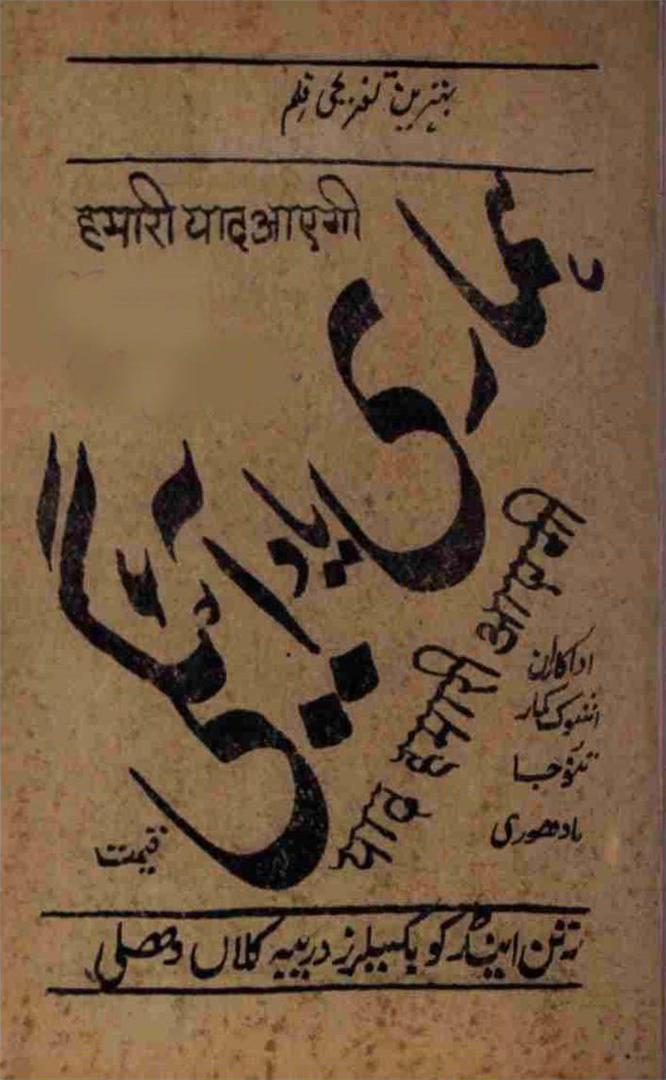 بہترین تفریحی فلم
हमारी याद आएगी
ہماری یاد آئیگی
याद हमारी आएगी
اداکاران
اشوک کمار
تنوجا
مادھوری
قیمت
رتن اینڈ کو بکسیلرز دریبہ کلاں دھلی